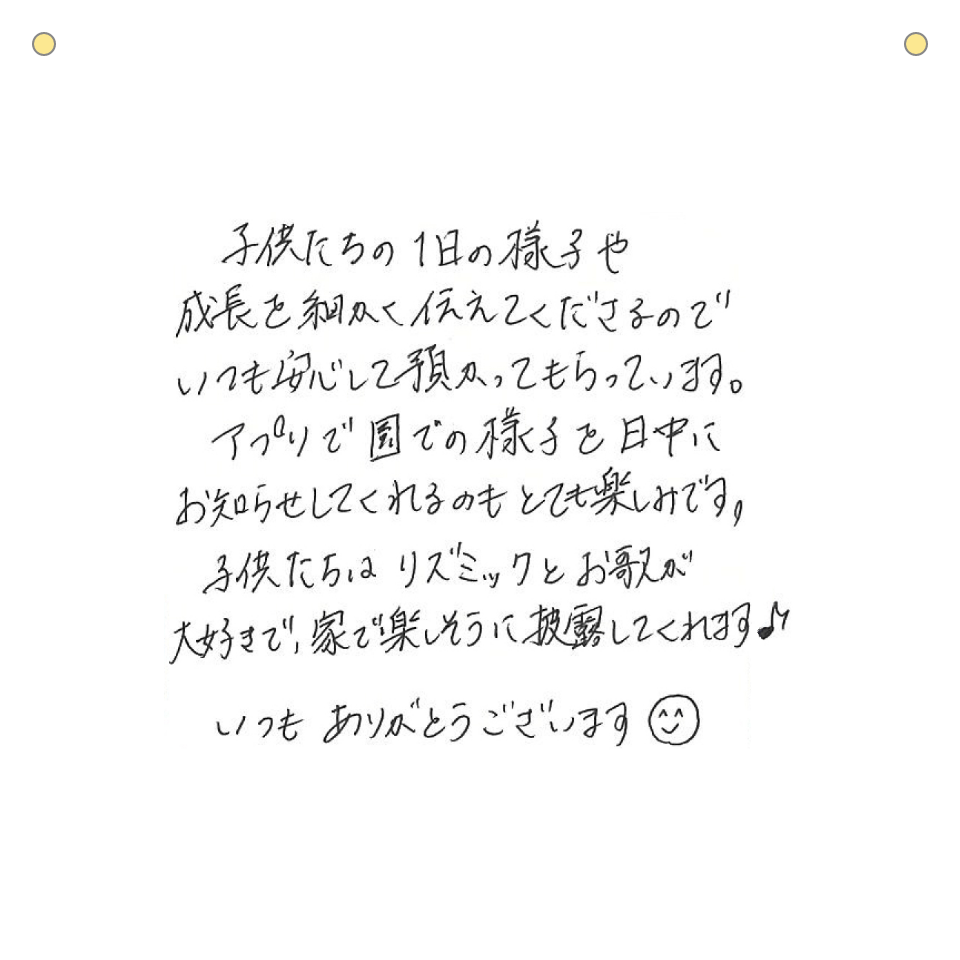 子供たちの1日の様子や
成長を細かく伝えてくださるので
いつも安心して預かってもらっています。
アプリで園での様子を日中に
お知らせしてくれるのもとても楽しみです。
子供たちはリズミックとお歌が
大好きで、家で楽しそうに披露してくれます♪
いつもありがとうございます☺